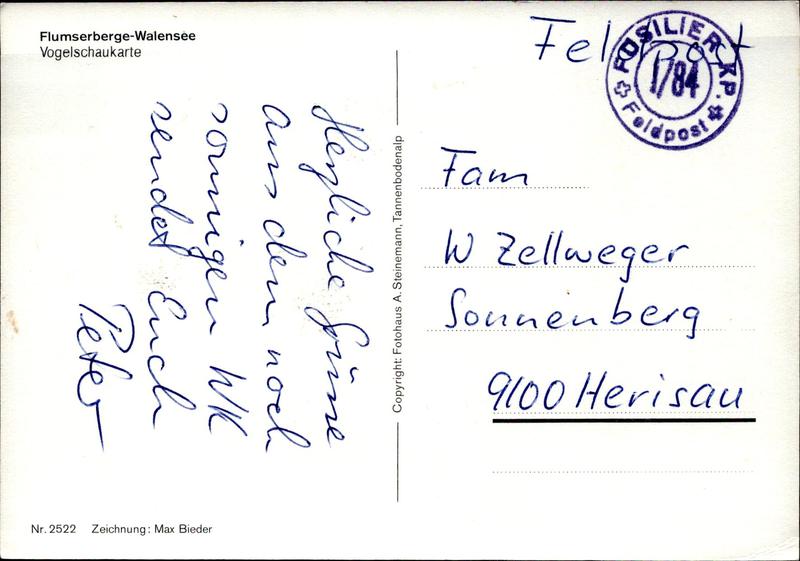 Flumserberge-Walensee
Vogelschaukarte
Herzliche Grüsse
aus dem noch
sonnigen WK
sendet Euch
Peter
Nr. 2522 Zeichnung: Max Bieder
Copyright: Fotohaus A. Steinemann, Tannenbodenalp
Feldpost
FÜSILIER KP.
I/84
Feldpost
Fam
W Zellweger
Sonnenberg
9100 Herisau